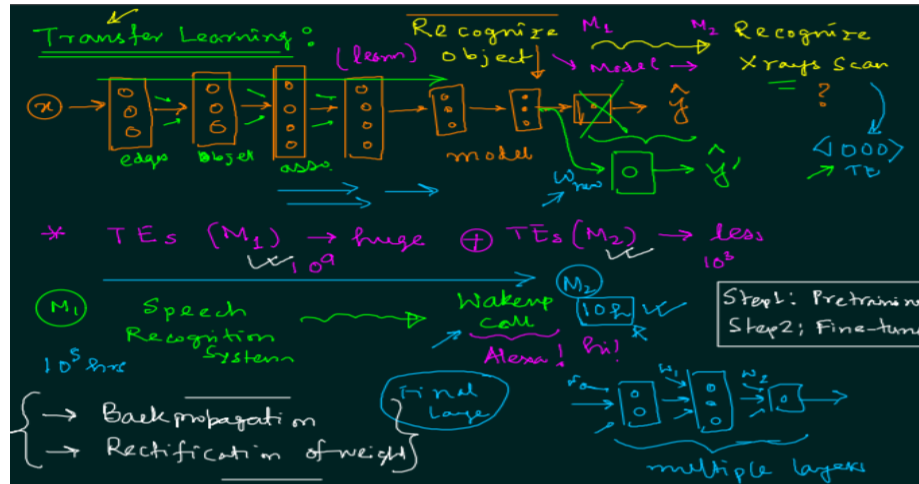 Transfer Learning:
(learn)
Recognize
object
M₁ M₂
Model
Recognize
Xrays Scan
?
x
ŷ
edges objet asso.
model
W new
ŷ'
<1000>
TE
* TEs (M₁) → huge ⊕ TEs (M₂) → less
10⁹ 10³
M₁ Speech
Recognition
System
Wakeup
call
Alexa! hi!
M₂
10h
Step1: Pretraining
Step2: Fine-tune
10⁵ hrs
→ Backpropagation
→ Rectification of weight
Final
Layer
W₁ W₂
multiple layers